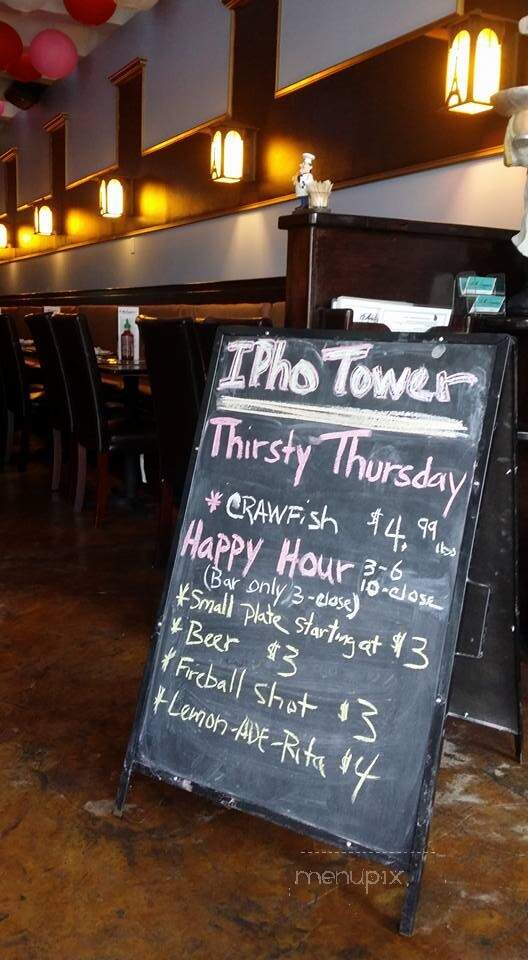 IPho Tower
Thirsty Thursday
* CRAWFish $4.99 lbs
Happy Hour 3-6
10-close
(Bar only 3-close)
*Small Plate Starting at $3
*Beer $3
*Fireball Shot $3
*Lemon-ADE-Rita $4
menupix